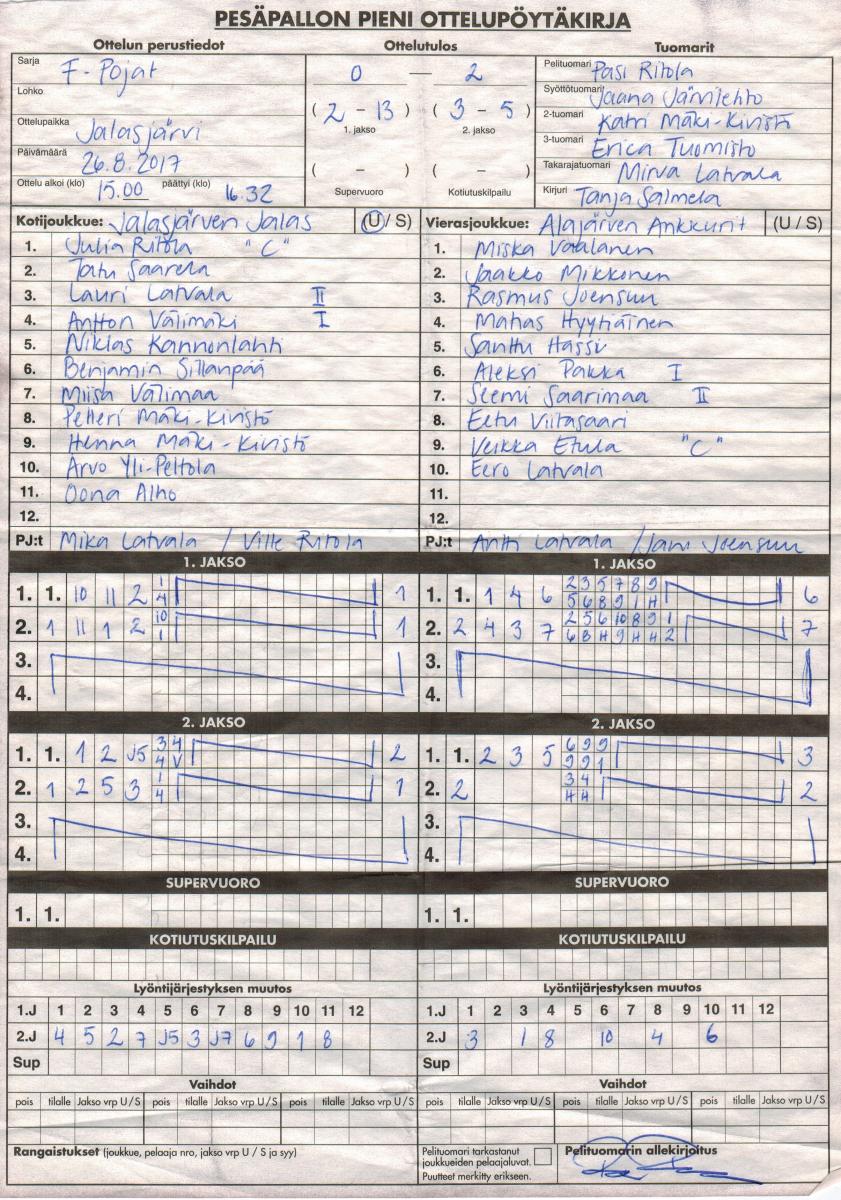 PESÄPALLON PIENI OTTELUPÖYTÄKIRJA
Ottelun perustiedot Ottelutulos Tuomarit
Sarja F-Pojat 0 — 2 Pelituomari Pasi Ritola
Lohko Syöttötuomari Jaana Järvilehto
( 2 - 13 ) ( 3 - 5 ) 2-tuomari Katri Mäki-Kivistö
Ottelupaikka Jalasjärvi 1. jakso 2. jakso 3-tuomari Erica Tuomisto
Päivämäärä 26.8.2017 ( - ) ( - ) Takarajatuomari Mirva Latvala
Ottelu alkoi (klo) 15.00 päättyi (klo) 16.32 Supervuoro Kotiutuskilpailu Kirjuri Tanja Salmela
Kotijoukkue: Jalasjärven Jalas (U / S) Vierasjoukkue: Alajärven Ankkurit (U / S)
1. Julia Ritola "C" 1. Miska Vaalanen
2. Tatu Saarela 2. Jaakko Mikkonen
3. Lauri Latvala II 3. Rasmus Joensuu
4. Antton Välimäki I 4. Mahas Hyytiäinen
5. Niklas Kannonlahti 5. Santtu Hassi
6. Benjamin Sillanpää 6. Aleksi Pakka I
7. Miisa Välimaa 7. Seemi Saarimaa II
8. Petteri Mäki-Kivistö 8. Eetu Viitasaari
9. Henna Mäki-Kivistö 9. Veikka Etula "C"
10. Arvo Yli-Peltola 10. Eero Latvala
11. Oona Alho 11.
12. 12.
PJ:t Mika Latvala / Ville Ritola PJ:t Antti Latvala / Jani Joensuu
1. JAKSO 1. JAKSO
1. 1. 10 11 2 1 4 1 1. 1. 1 4 6 2 3 5 7 8 9 6
5 6 8 9 1 H
2. 1 11 1 2 10 1 1 2. 2 4 3 7 2 5 6 10 8 9 1 7
6 8 H 9 H H 2
3. 3.
4. 4.
2. JAKSO 2. JAKSO
1. 1. 1 2 J5 3 4 2 1. 1. 2 3 5 6 9 9 3
4 V 9 9 1
2. 1 2 5 3 1 4 1 2. 2 3 4 2
H H
3. 3.
4. 4.
SUPERVUORO SUPERVUORO
1. 1. 1. 1.
KOTIUTUSKILPAILU KOTIUTUSKILPAILU
Lyöntijärjestyksen muutos Lyöntijärjestyksen muutos
1.J 1 2 3 4 5 6 7 8 9 10 11 12 1.J 1 2 3 4 5 6 7 8 9 10 11 12
2.J 4 5 2 7 J5 3 J7 6 9 1 8 2.J 3 1 8 10 4 6
Sup Sup
Vaihdot Vaihdot
pois tilalle Jakso vrp U / S pois tilalle Jakso vrp U / S pois tilalle Jakso vrp U / S pois tilalle Jakso vrp U / S pois tilalle Jakso vrp U / S pois tilalle Jakso vrp U / S
Rangaistukset (joukkue, pelaaja nro, jakso vrp U / S ja syy) Pelituomari tarkastanut Pelituomarin allekirjoitus
joukkueiden pelaajaluvat.
Puutteet merkitty erikseen.